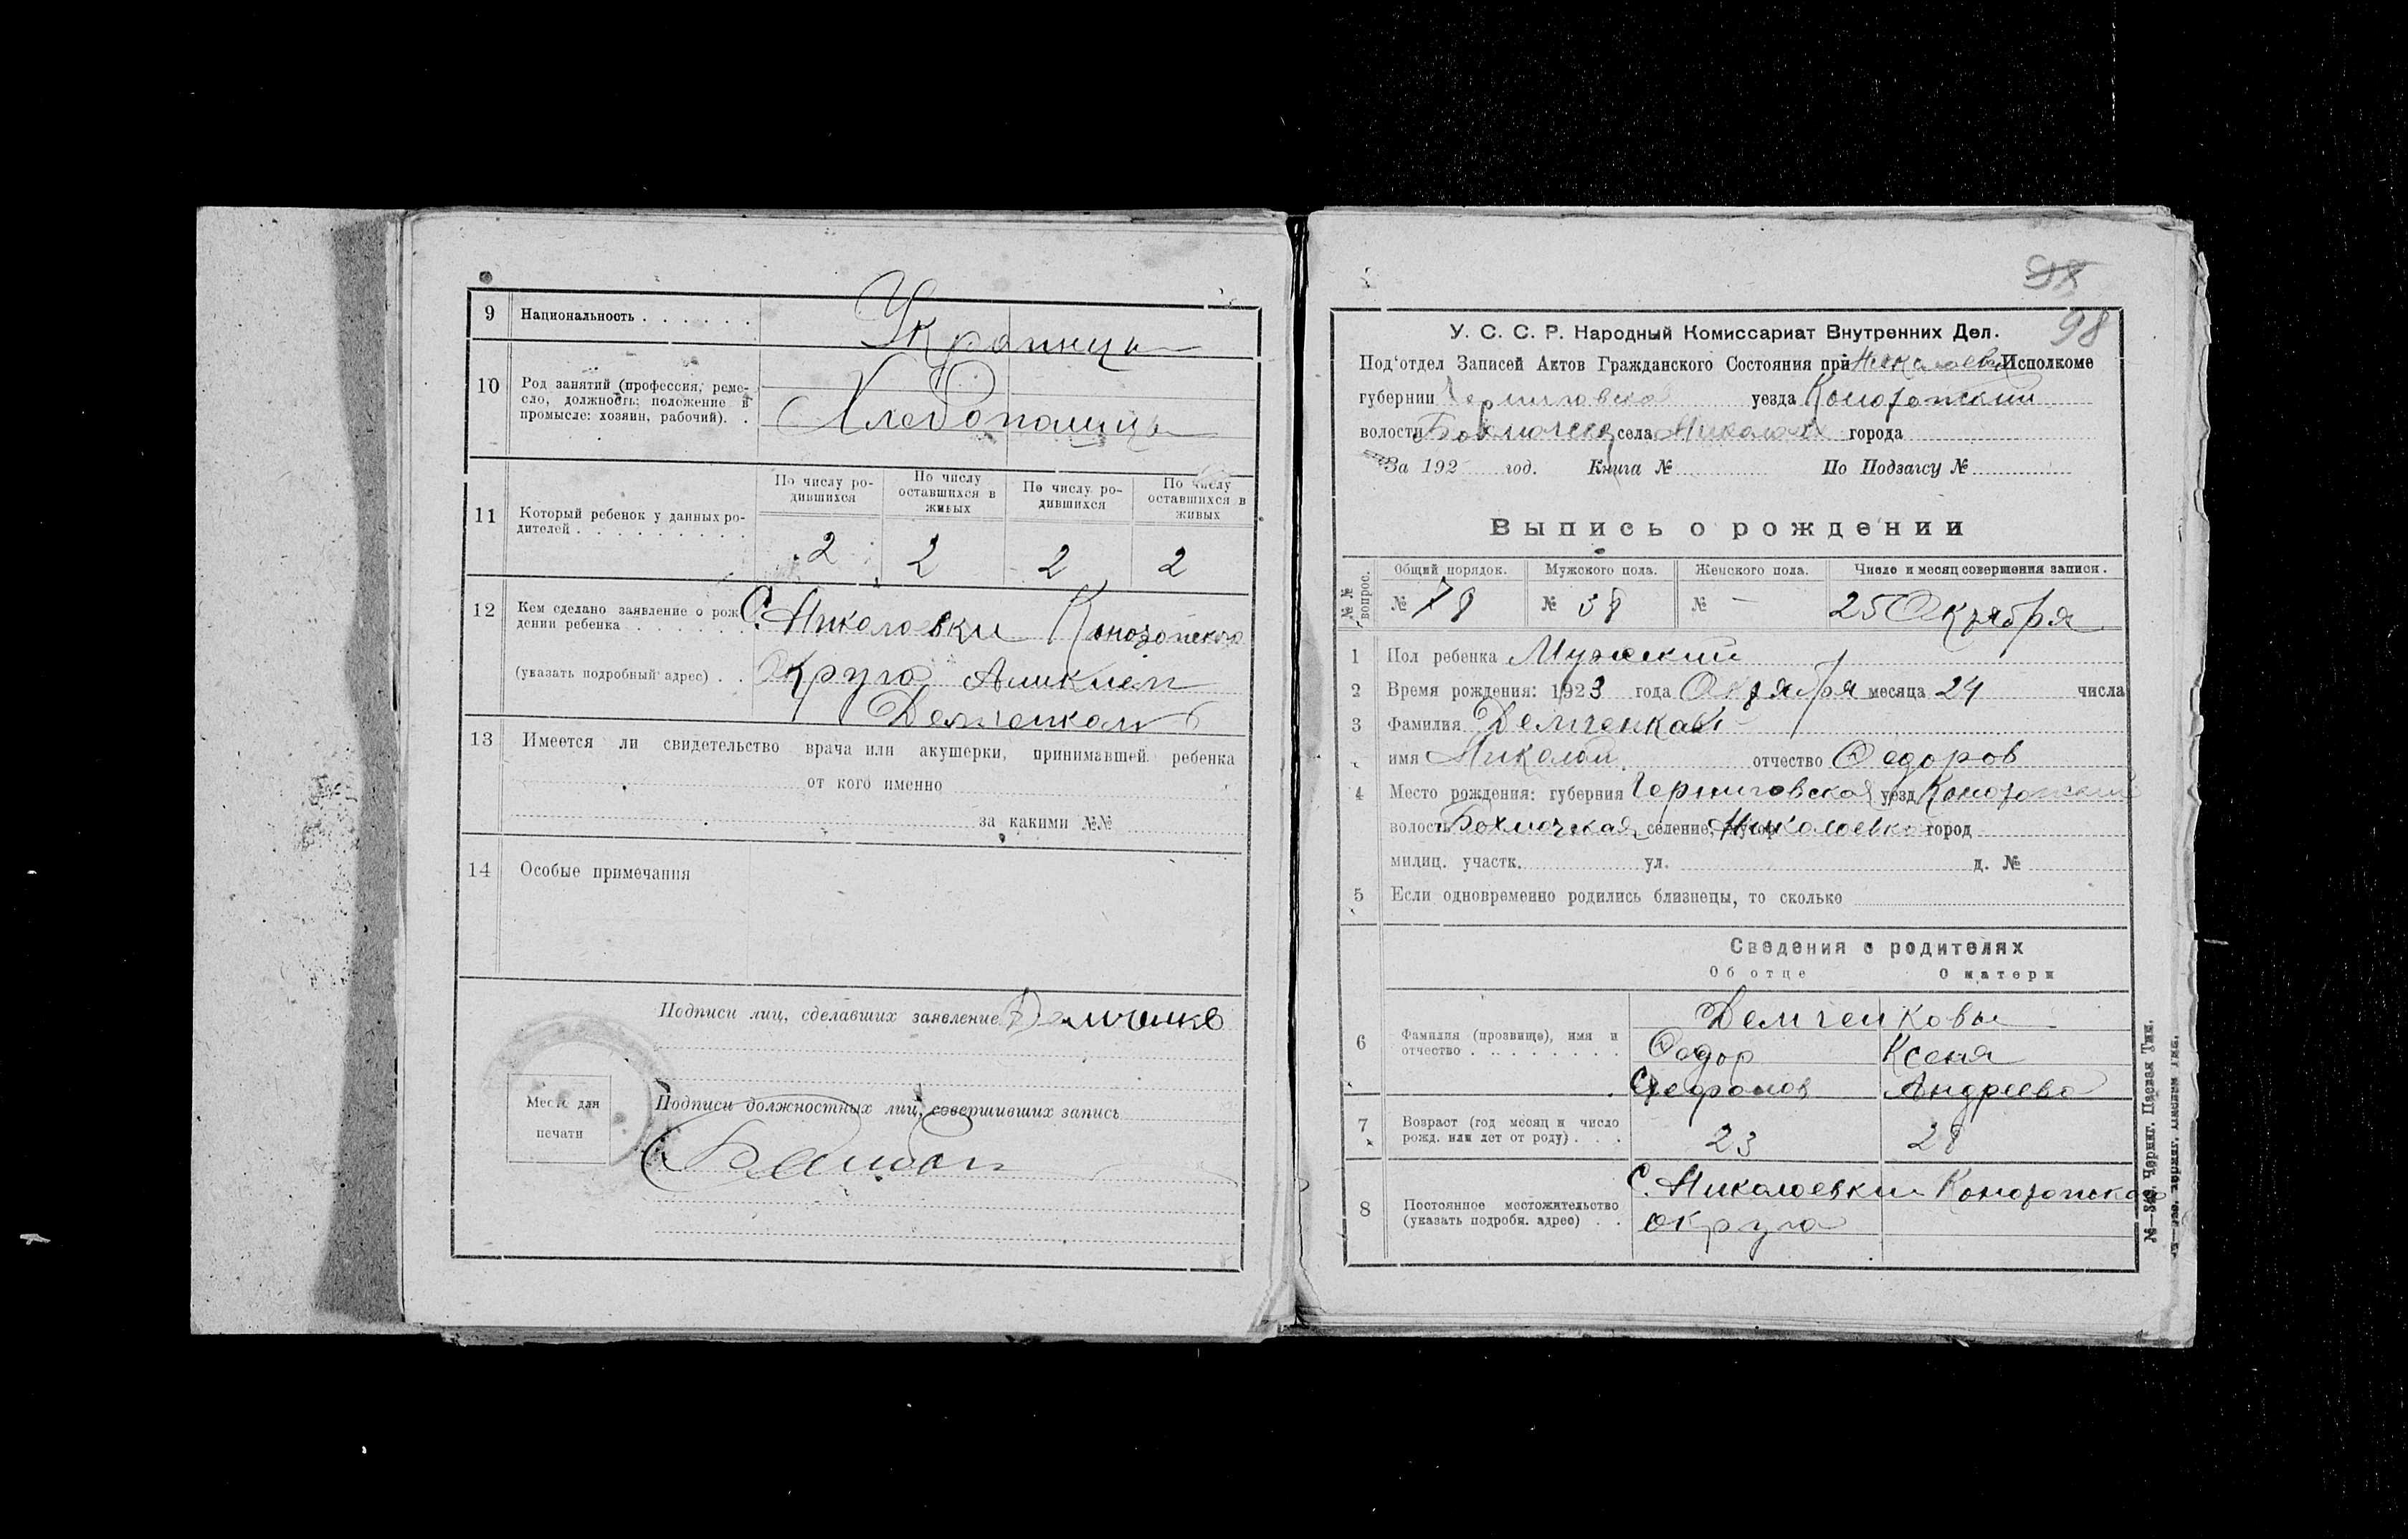 9 Национальность . . . . . . Украинцы
10 Род занятий (профессия, реме-
сло, должность; положение в
промысле: хозяин, рабочий). . Хлебопашцы
По числу ро-
дившихся
По числу
оставшихся в
живых
По числу ро-
дившихся
По числу
оставшихся в
живых
11 Который ребенок у данных ро-
дителей . . . . . . . . .
2 2 2 2
12 Кем сделано заявление о рож-
дении ребенка . . . . . . . С. Николаевки Конотопского
(указать подробный адрес) . . Округа
13 Имеется ли свидетельство врача или акушерки, принимавшей ребенка
от кого именно
за какими №№
14 Особые примечания
Подписи лиц, сделавших заявление Демченко
Место для
печати
Подписи должностных лиц, совершивших запись
98
98
У. С. С. Р. Народный Комиссариат Внутренних Дел.
Под'отдел Записей Актов Гражданского Состояния при Исполкоме
губернии Черниговско уезда Конотопский
волости села города
За 192 год. Книга № По Подзагсу №
Выпись о рождении
№№ вопрос.
Общий порядок. Мужского пола. Женского пола. Число и месяц совершения записи.
№ 78 № 38 № — 25 Октября
1 Пол ребенка Мужский
2 Время рождения: 1923 года Октября месяца 24 числа
3 Фамилия
имя Николай отчество Федоров
4 Место рождения: губерния Черниговская уезд Конотопский
волость Бахмачская селение, хутор Николаевка город
милиц. участк. ул. д. №
5 Если одновременно родились близнецы, то сколько
Сведения о родителях
Об отце О матери
Демченковы
6 Фамилия (прозвище), имя и
отчество . . . . . . . . .
Федор Ксеня
Андреева
7 Возраст (год месяц и число
рожд. или лет от роду) . . .
23 28
8 Постоянное местожительство
(указать подробн. адрес) . .
С. Николаевки Конотопского
округа
№—340. Черниг. Паевая Тип.